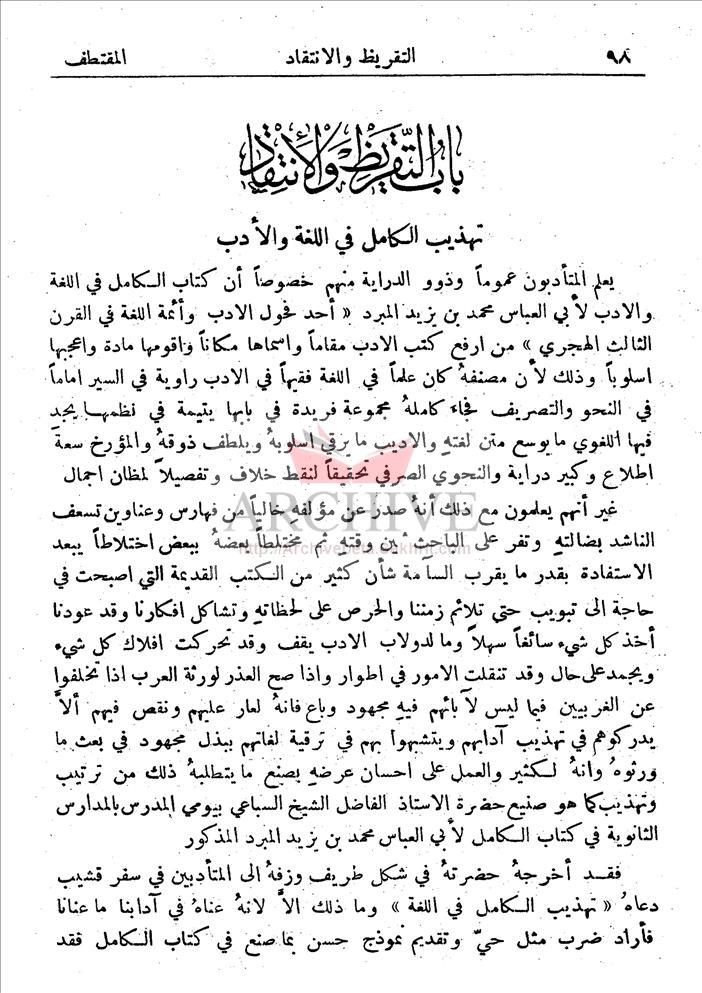 ٩٨ التقريظ والانتقاد المقتطف
باب التقريظ والانتقاد
تهذيب الكامل في اللغة والأدب
يعلم المتأدبون عموماً وذوو الدراية منهم خصوصاً أن كتاب الكامل في اللغة
والادب لأبي العباس محمد بن يزيد المبرد « أحد فحول الادب وأئمة اللغة في القرن
الثالث الهجري » من ارفع كتب الادب مقاماً واسماها مكاناً واقومها مادة واعجبها
اسلوباً وذلك لأن مصنفهُ كان علماً في اللغة فقيهاً في الادب راوية في السير اماماً
في النحو والتصريف فجاء كاملهُ مجموعة فريدة في بابها يتيمة في نظمها يجد
فيها اللغوي ما يوسع متن لغتهِ والاديب ما يرقي اسلوبهُ ويلطف ذوقهُ والمؤرخ سعة
اطلاع وكبير دراية والنحوي الصرفي تحقيقاً لنقط خلاف وتفصيلاً لمظان اجمال
غير أنهم يعلمون مع ذلك أنهُ صدر عن مؤلفه خالياً من فهارس وعناوين تسعف
الناشد بضالتهِ وتفر على الباحث ثمين وقتهِ ثم مختلطاً بعضهُ ببعض اختلاطاً يبعد
الاستفادة بقدر ما يقرب السآمة شأن كثير من الكتب القديمة التي اصبحت في
حاجة الى تبويب حتى تلائم زمننا والحرص على لحظاتهِ وتشاكل افكارنا وقد عودنا
أخذ كل شيء سائغاً سهلاً وما لدولاب الادب يقف وقد تحركت افلاك كل شيء
ويجمد على حال وقد تنقلت الامور في اطوار واذا صح العذر لورثة العرب اذا تخلفوا
عن الغربيين فيما ليس لآبائهم فيهِ مجهود وباع فانهُ لعار عليهم ونقص فيهم ألاَّ
يدركوهم في تهذيب آدابهم ويتشبهوا بهم في ترقية لغاتهم ببذل مجهود في بعث ما
ورثوهُ وانهُ لكثير والعمل على احسان عرضهِ بصنع ما يتطلبهُ ذلك من ترتيب
وتهذيب كما هو صنيع حضرة الاستاذ الفاضل الشيخ السباعي بيومي المدرس بالمدارس
الثانوية في كتاب الكامل لأبي العباس محمد بن يزيد المبرد المذكور
فقد أخرجهُ حضرتهُ في شكل طريف وزفهُ الى المتأدبين في سفر قشيب
دعاهُ « تهذيب الكامل في اللغة » وما ذلك الاَّ لانهُ عناهُ في آدابنا ما عنانا
فأراد ضرب مثل حيّ وتقديم نموذج حسن بما صنع في كتاب الكامل فقد
ARCHIVE